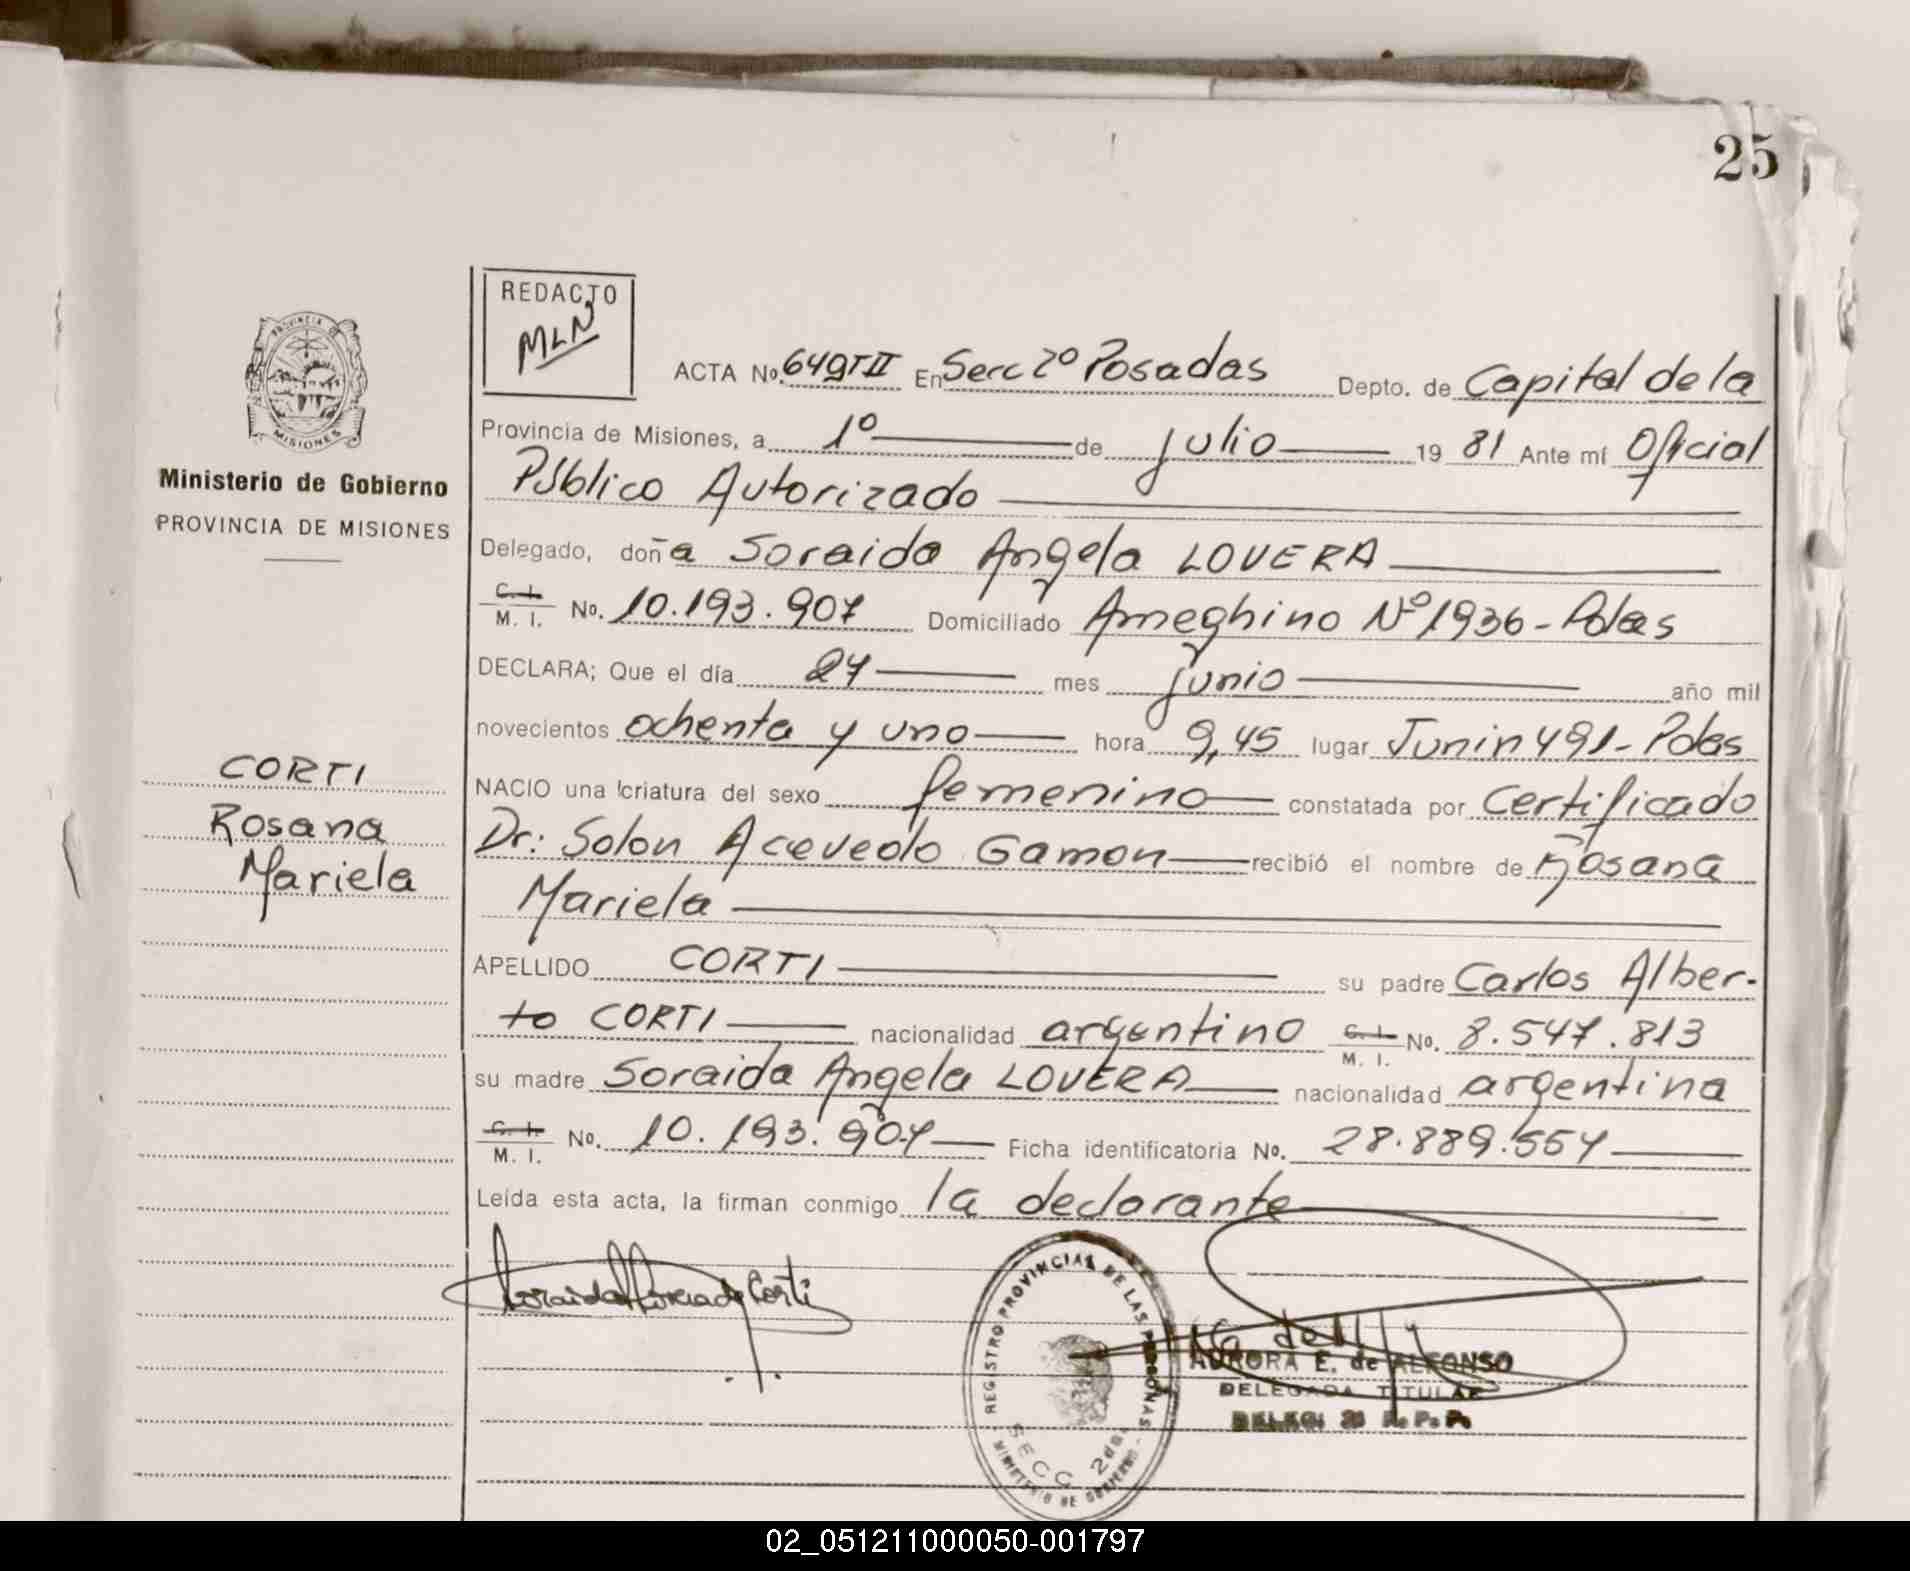 25
REDACTO
MLN
ACTA No. 649 T II En Secc 2º Posadas Depto. de Capital de la
Provincia de Misiones, a 1º de julio 19 81 Ante mí Oficial
Público Autorizado
Delegado, doña Soraida Angela LOVERA
C. I.
M. I. No. 10.193.907 Domiciliado Ameghino Nº 1936 - Pdas
DECLARA; Que el día 27 mes junio año mil
novecientos ochenta y uno hora 9,45 lugar Junin 491 - Pdas
NACIO una criatura del sexo femenino constatada por Certificado
Dr: Solon Acevedo Gamon recibió el nombre de Rosana
Mariela
APELLIDO CORTI su padre Carlos Alber-
to CORTI nacionalidad argentino C. I. M. I. No. 8.547.813
su madre Soraida Angela LOVERA nacionalidad argentina
C. I.
M. I. No. 10.193.907 Ficha identificatoria No. 28.889.557
Leída esta acta, la firman conmigo la declarante
PROVINCIA DE
MISIONES
Ministerio de Gobierno
PROVINCIA DE MISIONES
CORTI
Rosana
Mariela
Soraida Lovera de Corti
REGISTRO PROVINCIAL DE LAS PERSONAS
SECC 2da
MINISTERIO DE GOBIERNO
AURORA E. de ALFONSO
DELEGADA TITULAR
02_051211000050-001797